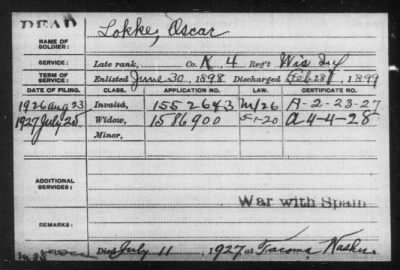 DEAD
NAME OF SOLDIER: Lokke, Oscar
SERVICE: Late rank, Co. K, 4 Reg't Wis Inf
TERM OF SERVICE: Enlisted June 30, 1898 Discharged Feb 28, 1899
DATE OF FILING. CLASS. APPLICATION NO. LAW. CERTIFICATE NO.
1926 Aug 23 Invalid, 1552643 m/26 A-2-23-27
1927 July 25 Widow, 1586900 5-1-20 A-4-4-28
Minor,
ADDITIONAL SERVICES:
War with Spain
REMARKS:
Died July 11, 1927 at Tacoma Washn